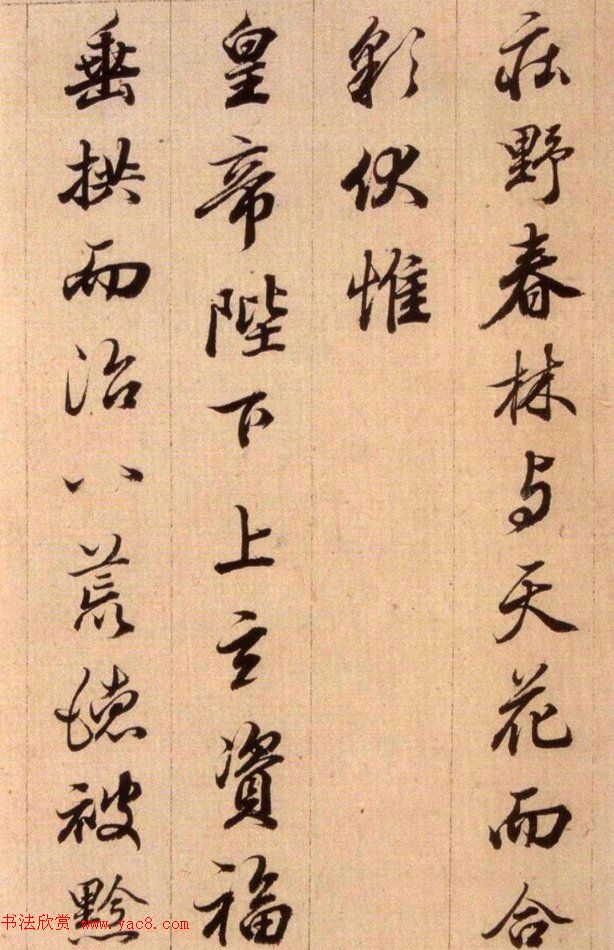 庄野春林与天花而合
彩伏惟
皇帝陛下上玄資福
垂拱而治八荒德被黔
书法欣赏 www.yac8.com